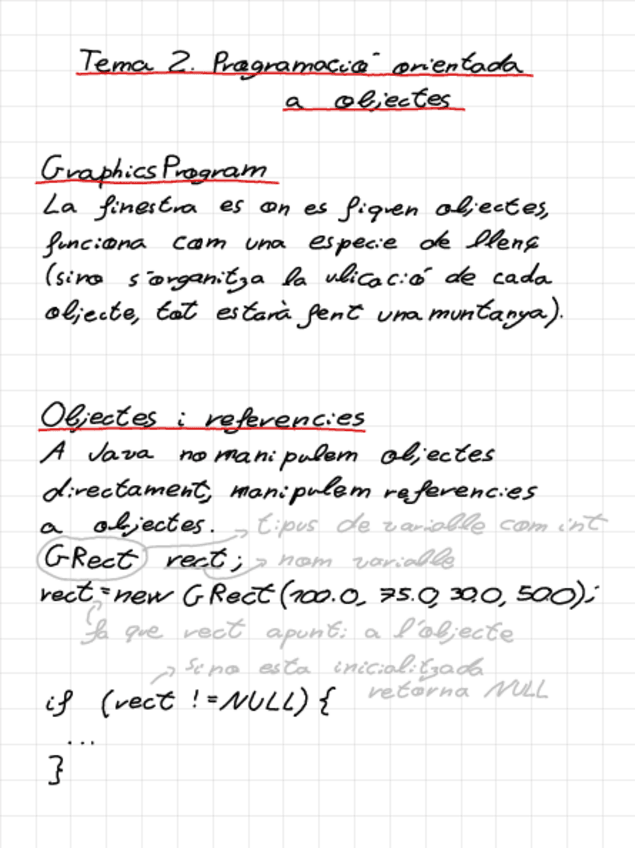 Tema 2. Programació orientada
a objectes
GraphicsProgram
La finestra es on es fiquen objectes,
funciona com una especie de llenç
(sino s'organitza la ubicació de cada
objecte, tot estarà fent una muntanya).
Objectes i referencies
A Java no manipulem objectes
directament, manipulem referencies
a objectes.
→ tipus de variable com int
GRect rect;
→ nom variable
rect = new GRect(100.0, 75.0, 30.0, 50.0);
fa que rect apunti a l'objecte
→ Si no esta inicialitzada
retorna NULL
if (rect != NULL) {
...
}